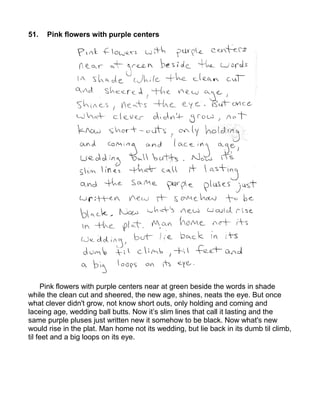 51. Pink flowers with purple centers
Pink flowers with purple centers
near at green beside the words
in shade while the clean cut
and sheered, the new age,
shines, neats the eye. But once
what clever didn't grow, not
know short-outs, only holding
and coming and laceing age,
wedding ball butts. Now its
slim lines that call it lasting
and the same purple pluses just
written new it somehow to be
black. Now what's new would rise
in the plat. Man home not its
wedding, but lie back in its
dumb til climb, til feet and
a big loops on its eye.
Pink flowers with purple centers near at green beside the words in shade
while the clean cut and sheered, the new age, shines, neats the eye. But once
what clever didn't grow, not know short outs, only holding and coming and
laceing age, wedding ball butts. Now it's slim lines that call it lasting and the
same purple pluses just written new it somehow to be black. Now what's new
would rise in the plat. Man home not its wedding, but lie back in its dumb til climb,
til feet and a big loops on its eye.